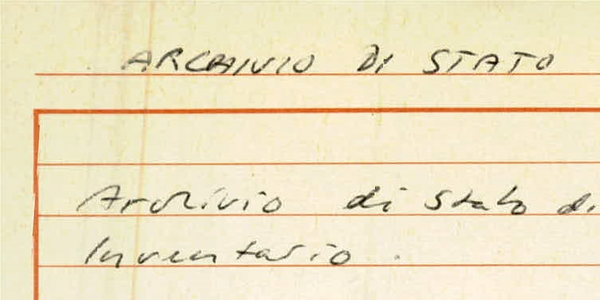 ARCHIVIO DI STATO
Archivio di Stato di
Inventario.